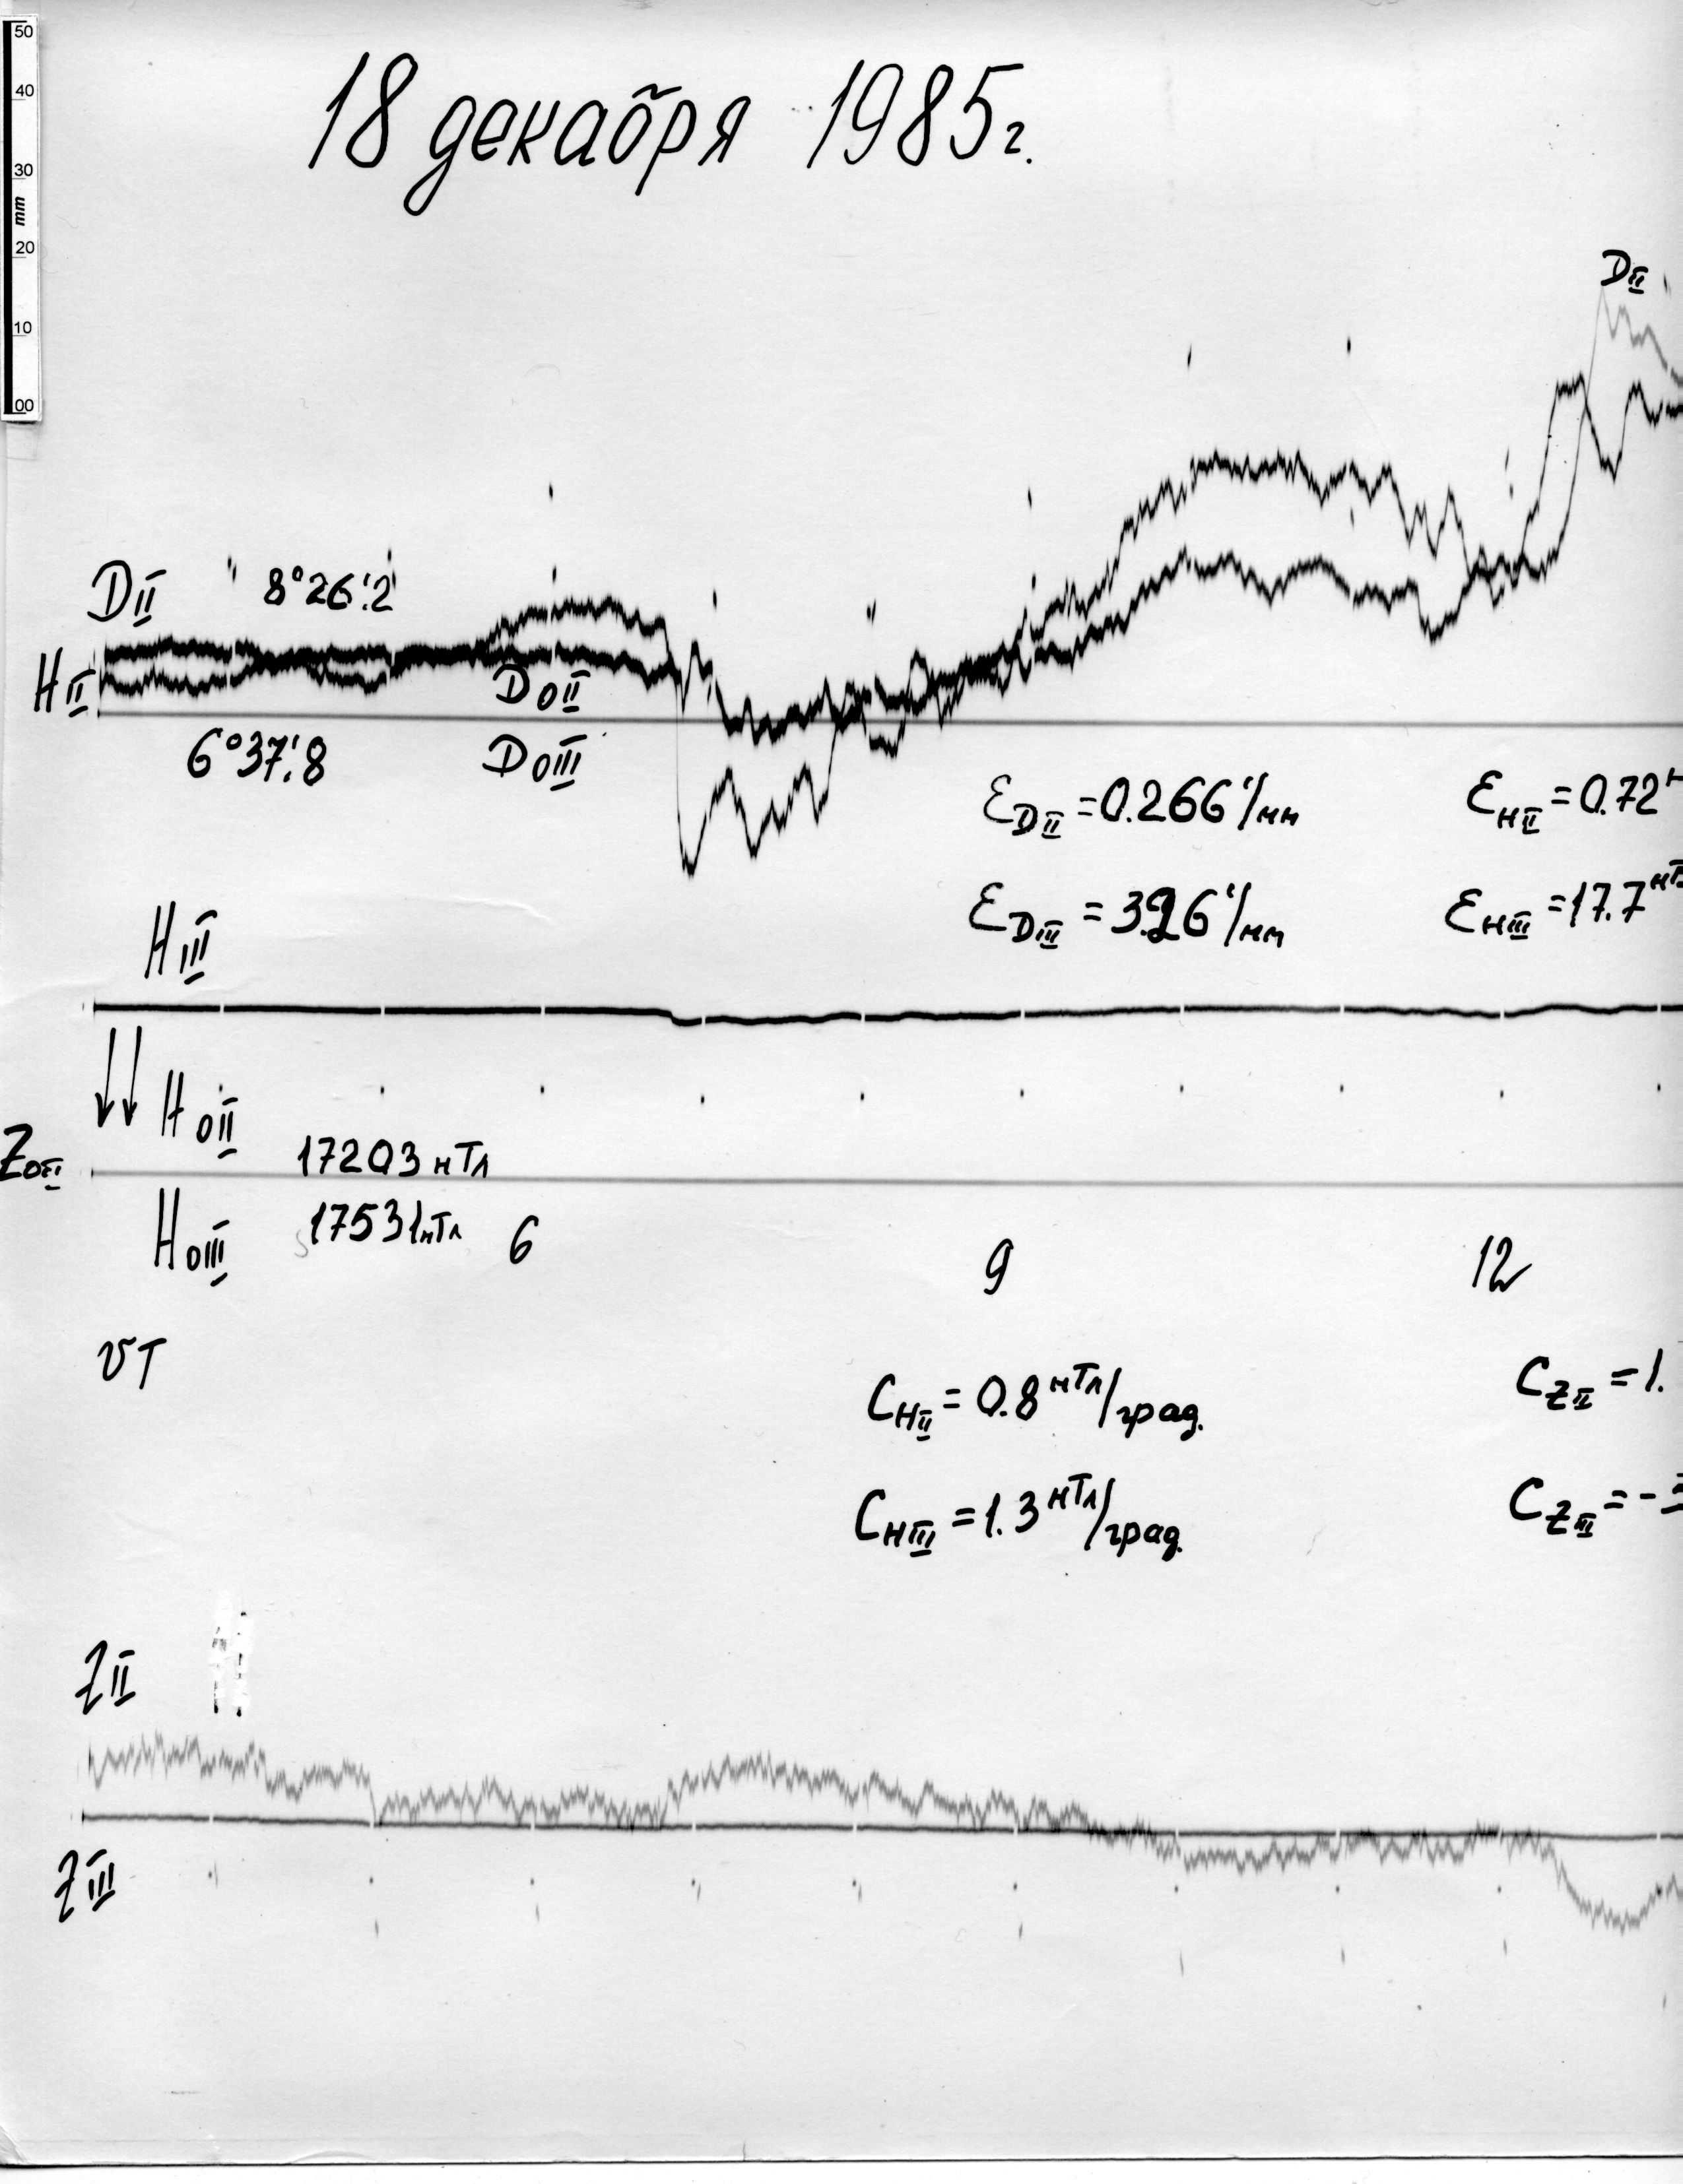 50
40
30
mm
20
10
00
18 декабря 1985г.
DII
DII 8°26!2
HII
DoII
6°37!8 DoIII
εDII =0.266'/мм εHII =0.72
εDIII =3.26'/мм εHIII =17.7 нТ
HIII
HoII
17203 нТл
HoIII 17531нТл 6 9 12
υT
CHII = 0.8 нТл/град. CZII =1.
CHIII =1.3 нТл/град. CZIII = -
ZII
ZIII